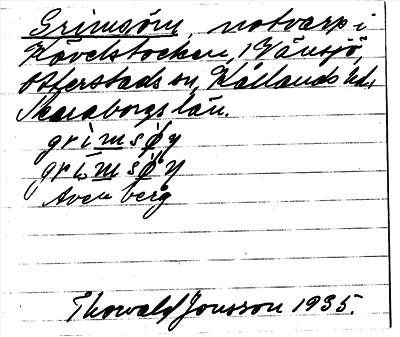 Grimsöm, notvarp i
Kävelstocken, i Vänsjö,
Otterstads sn, Kållands hd.,
Skaraborgs län.
grimsøy
grimsøy
Även berg
Thorvald Jonsson 1935.